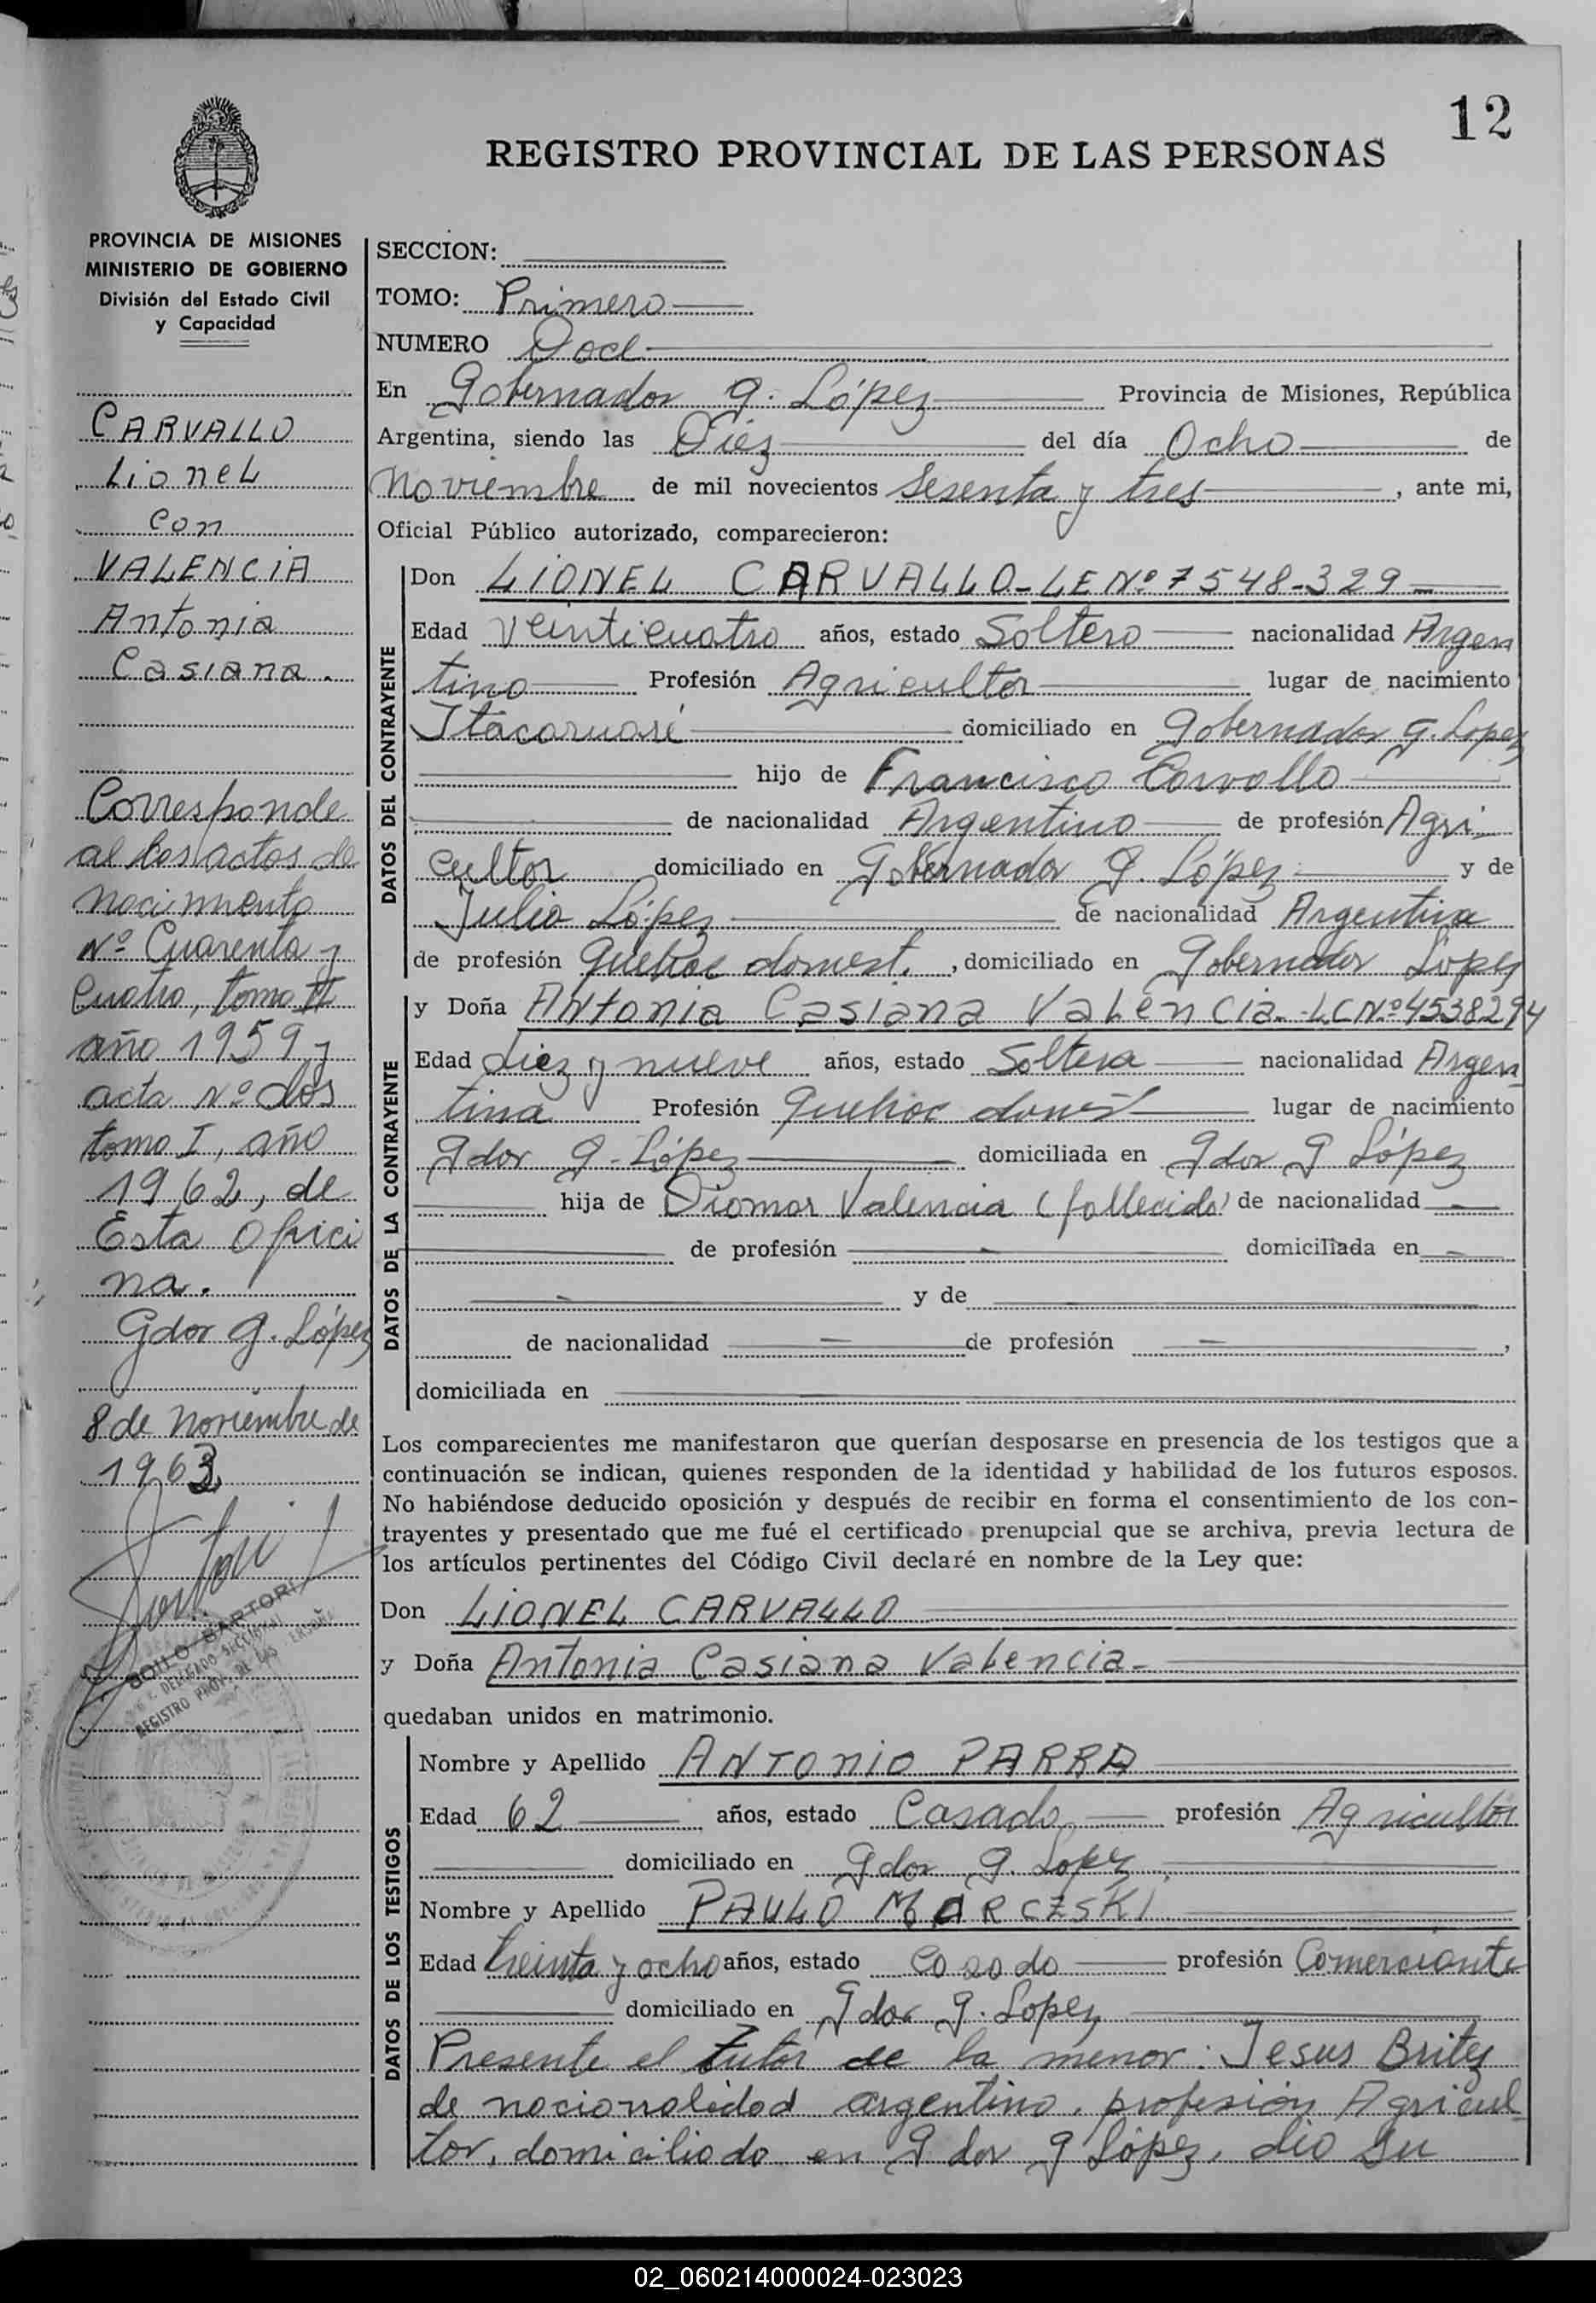 12
REGISTRO PROVINCIAL DE LAS PERSONAS
PROVINCIA DE MISIONES
MINISTERIO DE GOBIERNO
División del Estado Civil
y Capacidad
CARVALLO
Lionel
con
VALENCIA
Antonia
Casiana.
Corresponde
al los actos de
nacimiento
Nº Cuarenta y
Cuatro, tomo II
año 1959 y
acta Nº dos
tomo I, año
1962, de
Esta Ofici
na.
Gdor G. López
8 de Noviembre de
1963
SARTORI
DELEGADO SECCIONAL
REGISTRO PROV. DE LAS PERSONAS
SECCION:
TOMO: Primero
NUMERO Doce
En Gobernador G. López Provincia de Misiones, República
Argentina, siendo las Diez del día Ocho de
Noviembre de mil novecientos Sesenta y tres, ante mi,
Oficial Público autorizado, comparecieron:
DATOS DEL CONTRAYENTE
Don LIONEL CARVALLO - LE Nº 7548-329
Edad Veinticuatro años, estado Soltero nacionalidad Argen
tino Profesión Agricultor lugar de nacimiento
Itacaruaré domiciliado en Gobernador G. Lopez
hijo de Francisco Carvallo
de nacionalidad Argentino de profesión Agri
cultor domiciliado en Gobernador G. López y de
Julia López de nacionalidad Argentina
de profesión Quehac domest., domiciliado en Gobernador López
DATOS DE LA CONTRAYENTE
y Doña Antonia Casiana Valencia - LC Nº 4538294
Edad diez y nueve años, estado Soltera nacionalidad Argen
tina Profesión Quehac domést lugar de nacimiento
Gdor G. López domiciliada en Gdor G López
hija de Diomar Valencia (fallecido) de nacionalidad
de profesión domiciliada en
y de
de nacionalidad de profesión ,
domiciliada en
Los comparecientes me manifestaron que querían desposarse en presencia de los testigos que a
continuación se indican, quienes responden de la identidad y habilidad de los futuros esposos.
No habiéndose deducido oposición y después de recibir en forma el consentimiento de los con-
trayentes y presentado que me fué el certificado prenupcial que se archiva, previa lectura de
los artículos pertinentes del Código Civil declaré en nombre de la Ley que:
Don LIONEL CARVALLO
y Doña Antonia Casiana Valencia -
quedaban unidos en matrimonio.
DATOS DE LOS TESTIGOS
Nombre y Apellido ANTONIO PARRA
Edad 62 años, estado Casado profesión Agricultor
domiciliado en Gdor G. Lopez
Nombre y Apellido PAULO MARCZSKI
Edad treinta y ocho años, estado Casado profesión Comerciante
domiciliado en Gdor G. Lopez
Presente el tutor de la menor: Jesus Britez
de nacionalidad argentino, profesión Agricul
tor, domiciliado en Gdor G López, dio su
02_060214000024-023023